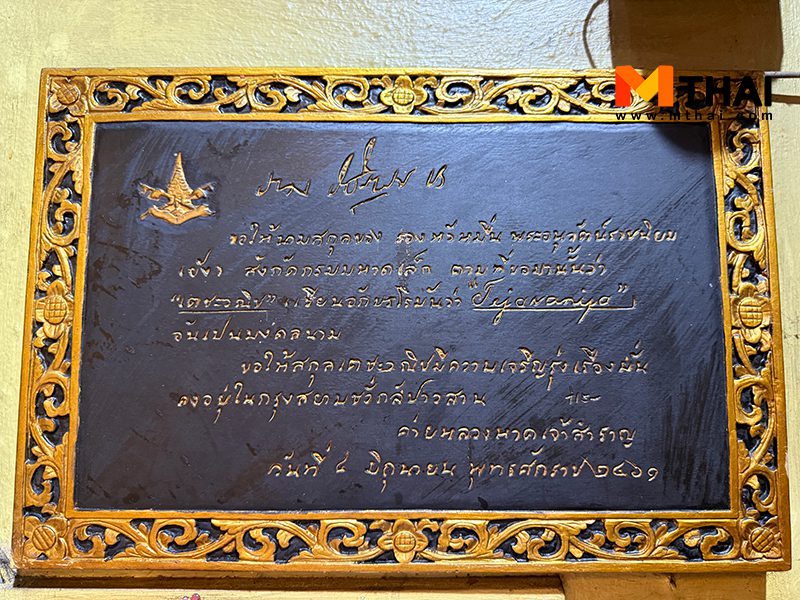 MTHAI
www.mthai.com
ขอให้นามสกุลของ รองหัวหมื่น พระอนุวัตน์ราชนิยม
สังกัดกรมมหาดเล็ก ตามที่ขอมานั้นว่า
"เตชะวณิช" เขียนอักษรโรมันว่า "Tejavanija"
อันเป็นมงคลนาม
ขอให้สกุลเตชะวณิชมีความเจริญรุ่งเรืองมั่น
คงอยู่ในกรุงสยามชั่วกัลปาวสาน
ค่ายหลวงหาดเจ้าสำราญ
วันที่ ๔ มิถุนายน พุทธศักราช ๒๔๖๑